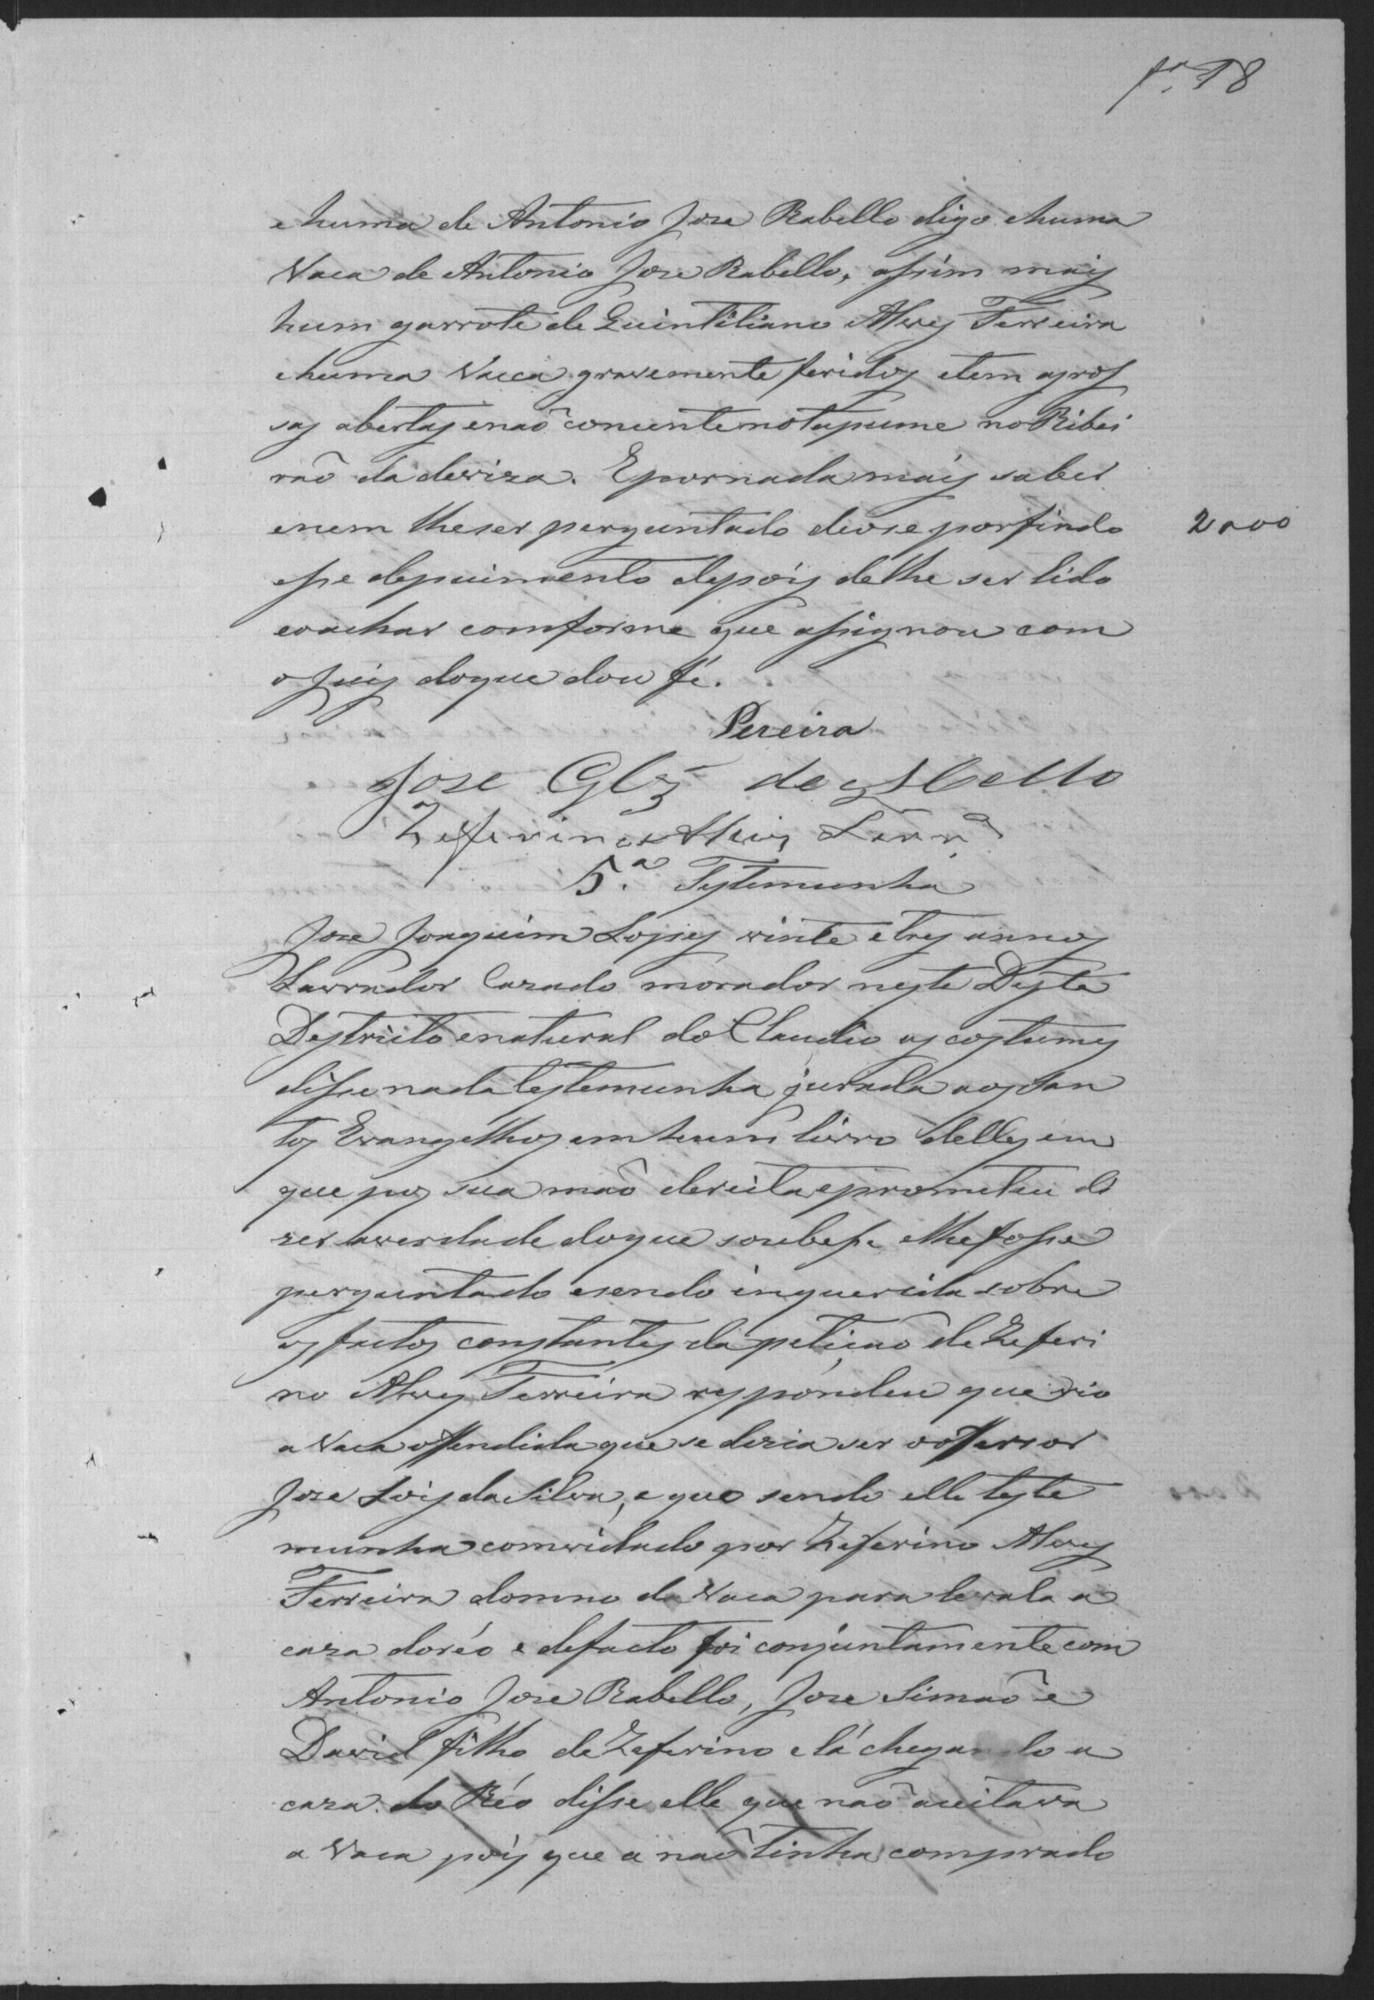 fs. 18
e huma de Antonio Jose Rabello digo e huma
Vaca de Antonio Jose Rabello, assim mais
hum garrote de Quintiliano Alves Ferreira
e huma Vacca gravemente feridos e tem as ros
sas abertas e naõ concente no tapume no Ribei
raõ da deviza. E por nada mais saber
e nem lhe ser perguntado deose por findo
2000
esse depuimento depois de lhe ser lido
e o achar comforme que assignou com
o Juis do que dou fé.
Pereira
Jose Glz de Mello
Zeferino Alvez Ferrª
5.ª Testemunha
Jose Joaquim Lopes vinte e tres annos
Lavrador Cazado morador neste Deste
Destricto e natural do Claudio os costumes
disse nada testemunha jurada aos San
tos Evangelhos em hum livro delles em
que pos sua maõ dereita e prometeu di
zer a verdade do que soubesse e lhe fosse
perguntado e sendo inquerida sobre
os factos constantes da petiçaõ de Zeferi
no Alves Ferreira respondeu que vio
a Vaca offendida que se dezia ser o ofensor
Jose Lois da Silva, e que sendo elle teste
munha comvidado por Zeferino Alves
Ferreira domno da Vaca para levala a
caza do réo e de facto foi conjuntamente com
Antonio Jose Rabello, Jose Simaõ e
David filho de Zeferino e lá chegando a
caza do Réo disse elle que naõ aceitava
a Vaca pois que a naõ tinha comprado